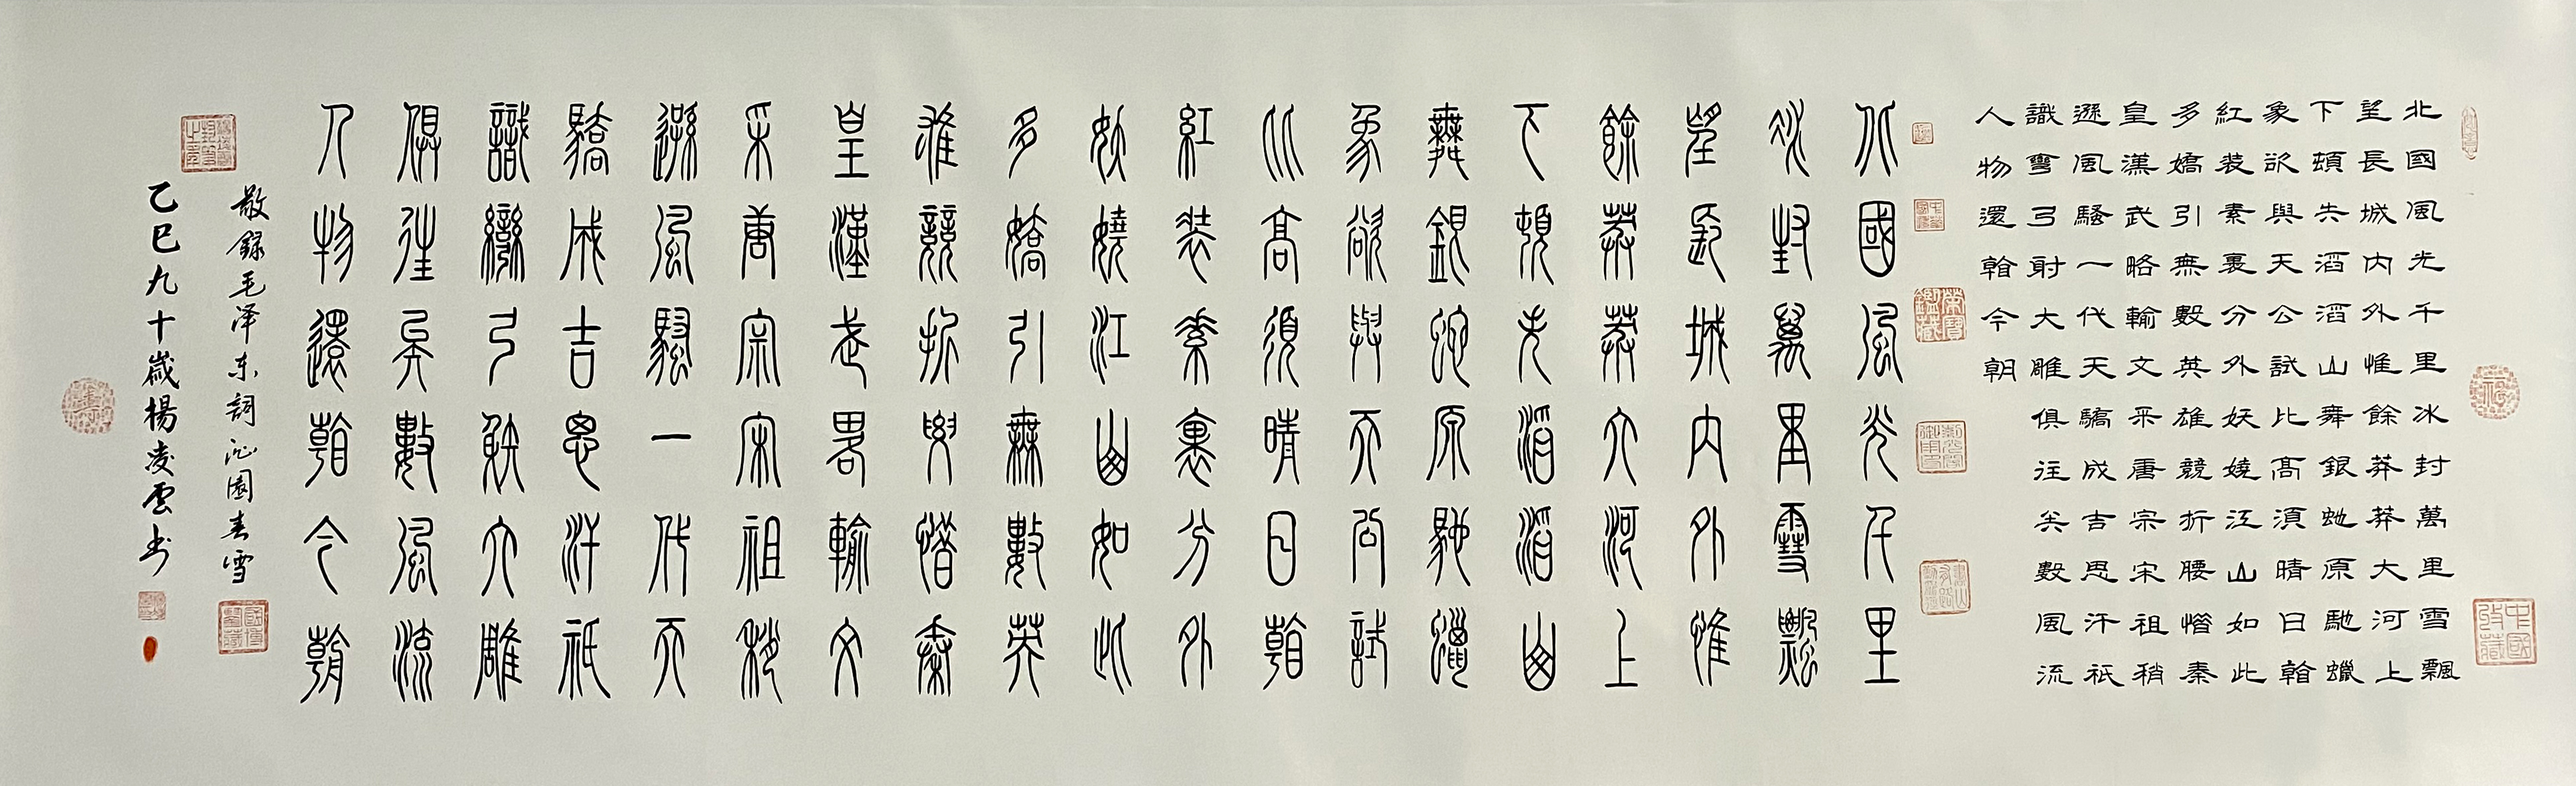 北國風光千里冰封萬里雪飄
望長城內外惟餘莽莽大河上
下頓失滔滔山舞銀虵原馳蠟
象欲與天公試比高須晴日看
紅裝素裹分外妖嬈江山如此
多嬌引無數英雄競折腰惜秦
皇漢武略輸文采唐宗宋祖稍
遜風騷一代天驕成吉思汗祇
識彎弓射大雕俱往矣數風流
人物還看今朝
北國風光千里
冰封萬里雪飄
望長城內外惟
餘莽莽大河上
下頓失滔滔山
舞銀蛇原馳蠟
象欲與天公試
比高須晴日看
紅裝素裹分外
妖嬈江山如此
多嬌引無數英
雄競折腰惜秦
皇漢武略輸文
采唐宗宋祖稍
遜風騷一代天
驕成吉思汗祇
識彎弓射大雕
俱往矣數風流
人物還看今朝
敬録毛泽东詞沁園春雪
乙巳九十歲楊凌雲书
中國收藏
福
榮寶鑑藏
壽